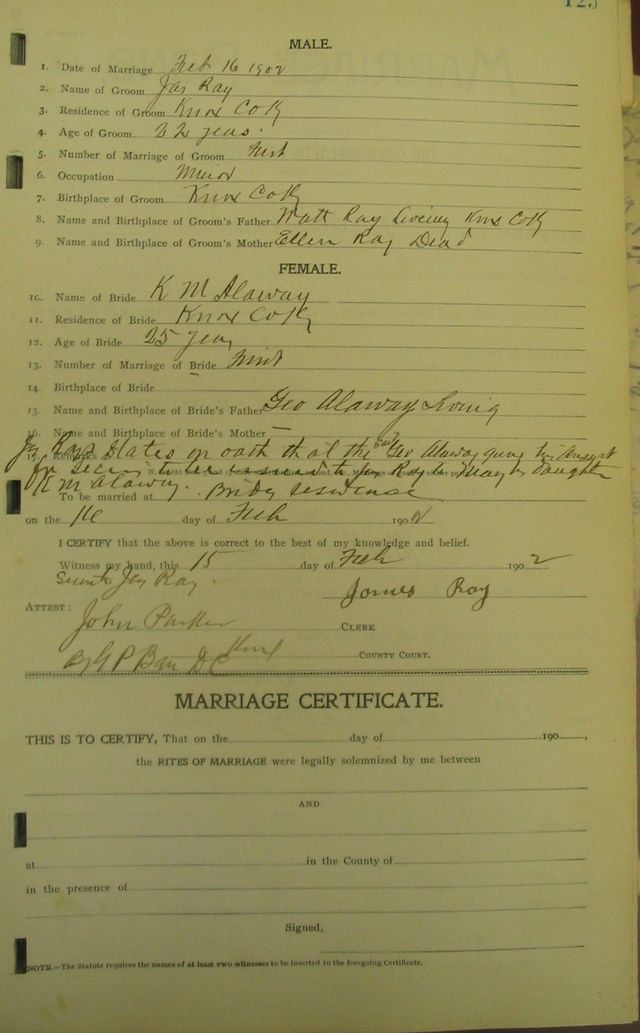 123
MALE.
1. Date of Marriage Feb 16 1902
2. Name of Groom Jas Ray
3. Residence of Groom Knox Co Ky
4. Age of Groom 22 years.
5. Number of Marriage of Groom First
6. Occupation Minor
7. Birthplace of Groom Knox Co Ky
8. Name and Birthplace of Groom's Father Matt Ray Living Knox Co Ky
9. Name and Birthplace of Groom's Mother Ellen Ray Dead
FEMALE.
10. Name of Bride K M Alaway
11. Residence of Bride Knox Co Ky
12. Age of Bride 25 years
13. Number of Marriage of Bride First
14. Birthplace of Bride
15. Name and Birthplace of Bride's Father Geo Alaway Living
16. Name and Birthplace of Bride's Mother —
States on oath that the Geo Alaway gave his consent
for license to be issued to Jas Ray to marry his daughter
K M Alaway.
To be married at Brides residence
on the 16 day of Feb 1902
I CERTIFY that the above is correct to the best of my knowledge and belief.
Witness my hand, this 15 day of Feb 1902
Jas Ray. James Ray
ATTEST:
John Parker CLERK
By G P Bain D C Knox COUNTY COURT.
MARRIAGE CERTIFICATE.
THIS IS TO CERTIFY, That on the day of 190 ,
the RITES OF MARRIAGE were legally solemnized by me between
AND
at in the County of
in the presence of
Signed,
NOTE.—The Statute requires the names of at least two witnesses to be inserted in the foregoing Certificate.